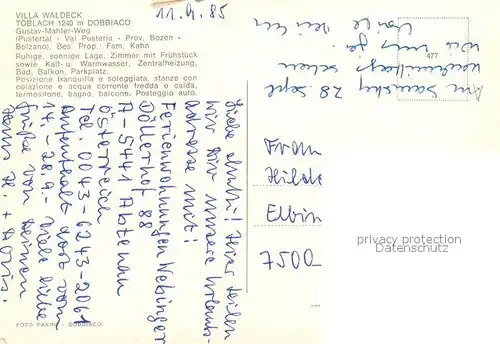 VILLA WALDECK
TOBLACH 1240 m DOBBIACO
Gustav-Mahler-Weg
(Pustertal - Val Pusteria - Prov. Bozen -
Bolzano). Bes. Prop.: Fam. Kahn
Ruhige, sonnige Lage, Zimmer mit Frühstück
sowie Kalt- u. Warmwasser, Zentralheizung,
Bad, Balkon, Parkplatz.
Posizione tranquilla e soleggiata, stanze con
colazione e acqua corrente fredda e calda,
termosifone, bagno, balcone. Posteggio auto.
11.9.85
Liebe
wir Dir unsere Urlaubs-
adresse mit:
Ferienwohnungen Webinger
Döllerhof 88
A-5441 Abtenau
Österreich
Tel. 0043-6243-2061
Aufenthalt dort vom
14.-28.9.- Viele liebe
Grüße von Deinen
H. + Doris.
Am Samstag 28. Sept
sehen
wir uns ja.
477
Frau
Hilde
Elbin
7500
privacy protection
www.akpool.de
FOTO PASINI - DOBBIACO